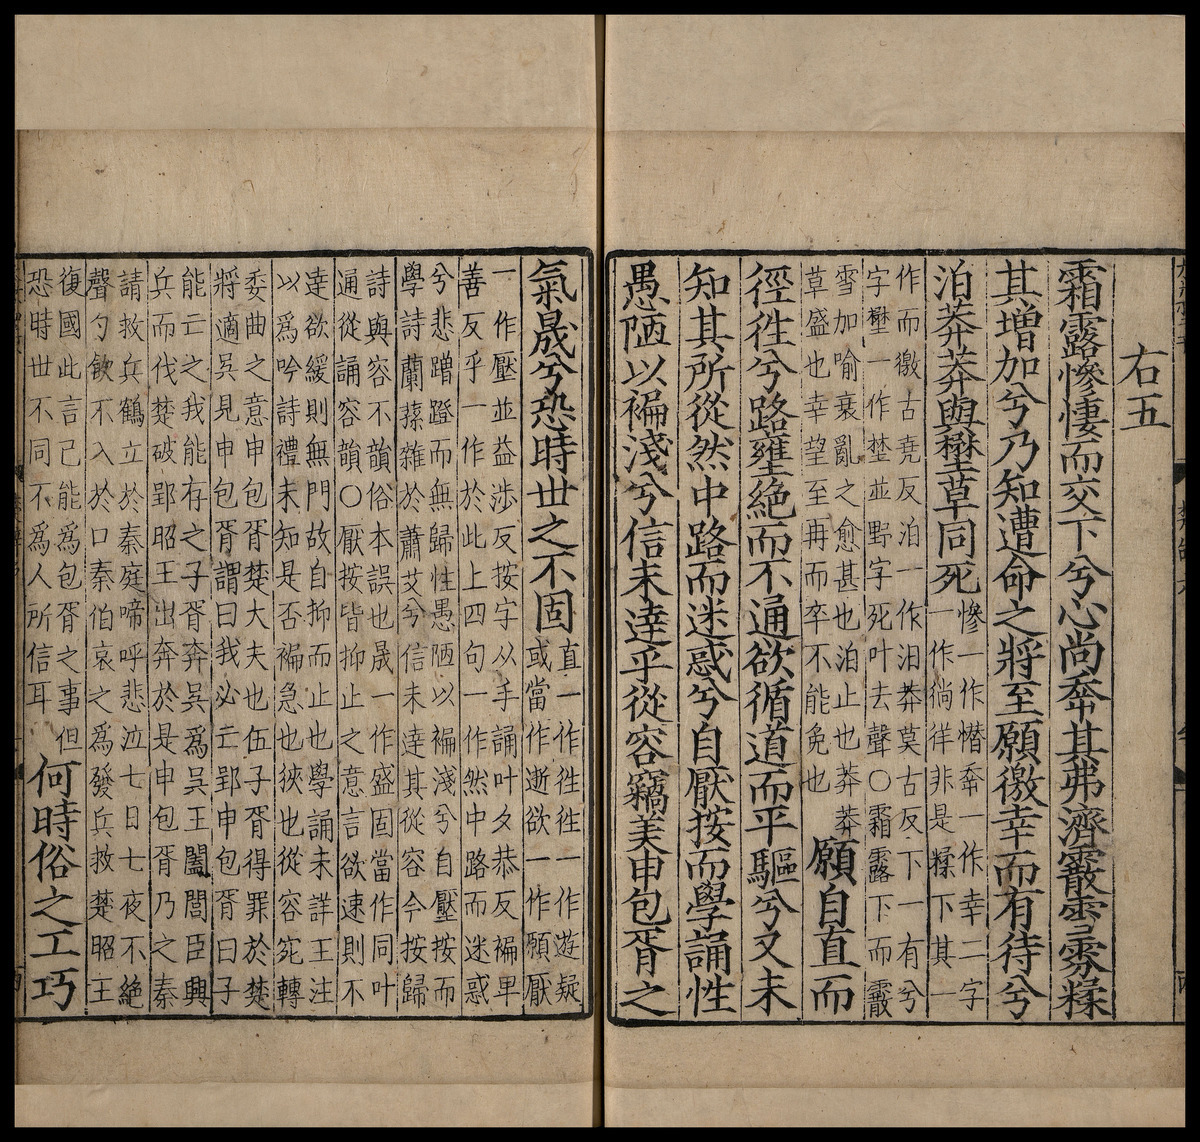 右五
霜露慘悽而交下兮心尚㚔其弗濟霰雪雰糅
其增加兮乃知遭命之將至願徼幸而有待兮
泊莽莽與壄草同死
慘一作憯㚔一作幸二字
一作徜徉非是糅下其一
作而徼古堯反泊一作汨莽莫古反下一有兮
字壄一作埜並野字死叶去聲○霜露下而霰
雪加喻衰亂之愈甚也泊止也莽莽
草盛也幸望至再而卒不能免也
願自直而
徑徃兮路壅絶而不通欲循道而平驅兮又未
知其所從然中路而迷惑兮自厭按而學誦性
愚陋以褊淺兮信未達乎從容竊美申包胥之
氣晟兮恐時世之不固
直一作徃徃一作遊疑
或當作逝欲一作願厭
一作壓並益涉反按字以手誦叶夕恭反褊卑
善反乎一作於此上四句一作然中路而迷惑
兮悲蹭蹬而無歸性愚陋以褊淺兮自壓按而
學詩蘭蓀雜於蕭艾兮信未達其從容今按歸
詩與容不韻俗本誤也晟一作盛固當作同叶
通從誦容韻○厭按皆抑止之意言欲速則不
達欲緩則無門故自抑而止也學誦未詳王注
以爲吟詩禮未知是否褊急也狹也從容宛轉
委曲之意申包胥楚大夫也伍子胥得罪於楚
將適吳見申包胥謂曰我必亡郢申包胥曰子
能亡之我能存之子胥奔吳爲吳王闔閭臣興
兵而伐楚破郢昭王出奔於是申包胥乃之秦
請救兵鶴立於秦庭啼呼悲泣七日七夜不絶
聲勺飲不入於口秦伯哀之爲發兵救楚昭王
復國此言己能爲包胥之事但
恐時世不同不爲人所信耳
何時俗之工巧